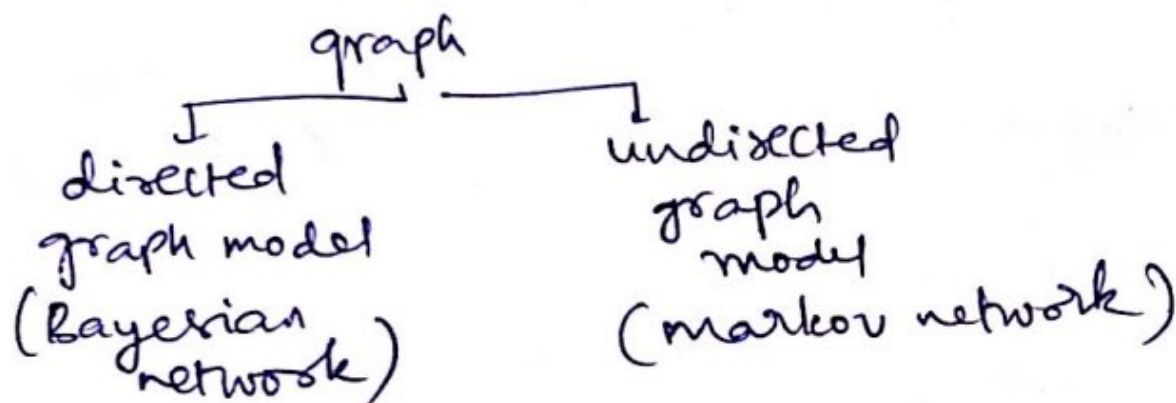 graph
directed
graph model
(Bayesian
network)
undirected
graph
model
(markov network)